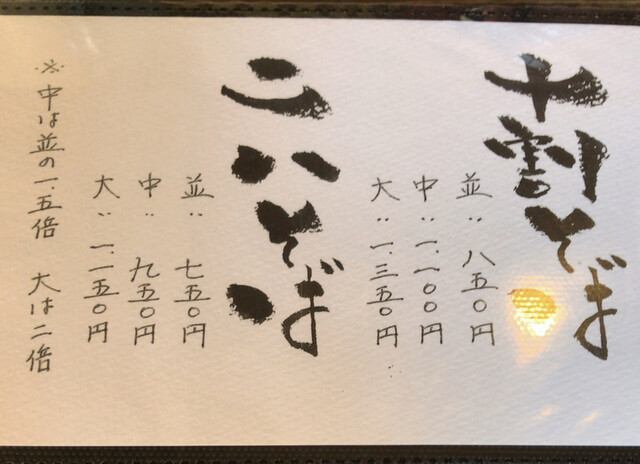 十割そば
並:八五〇円
中:一.一〇〇円
大:一.三五〇円
二八そば
並:七五〇円
中:九五〇円
大:一.一五〇円
※中は並の一.五倍 大は二倍